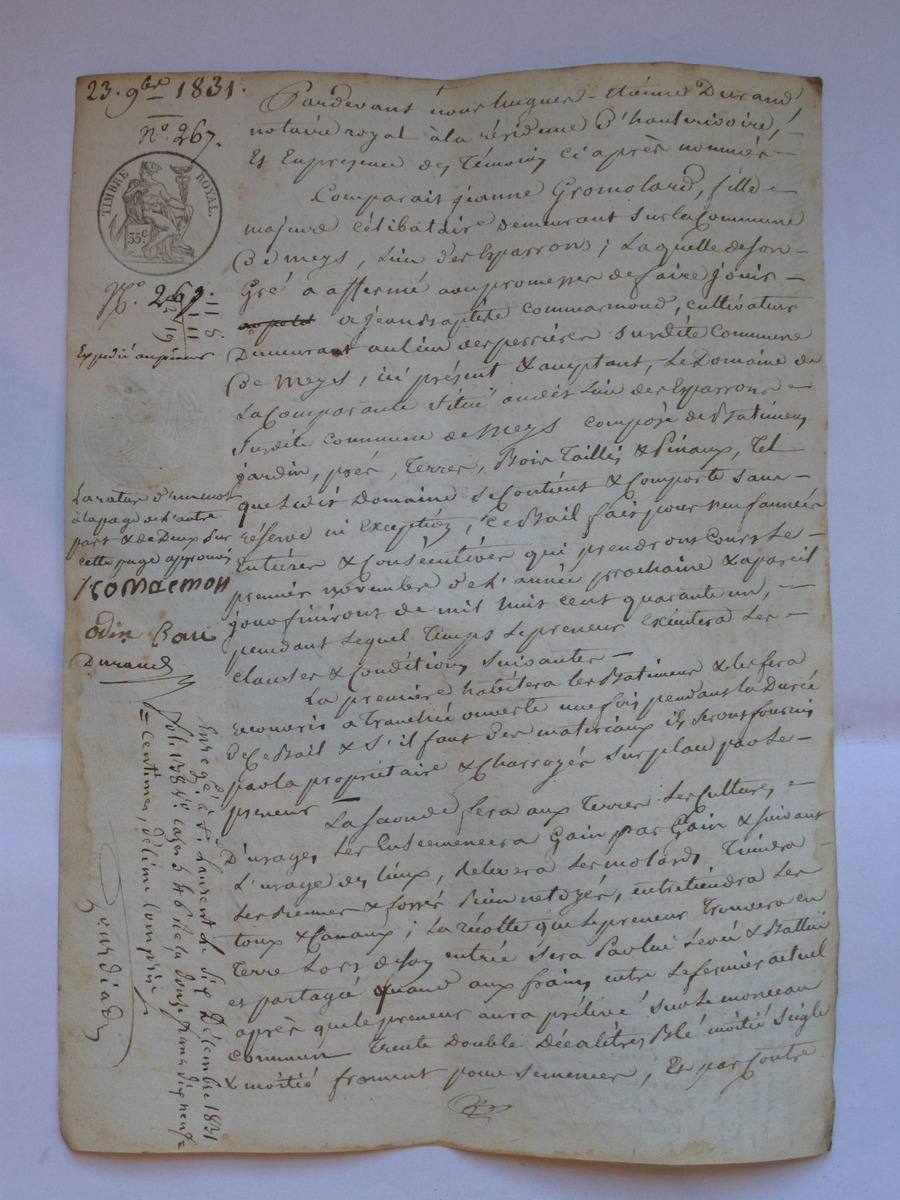 23. 9bre 1831.
N.o 267.
TIMBRE ROYAL.
35 c
N.o 267.
Expédié au preneur
La rature d'un mot
à la page de l'autre
part & de deux sur
cette page approuvés
Comarmon
odin
Durand
Pardevant nous hugues-étiénne Durand,
notaire royal à la résidence d'hauterivoire,
Et En présence des témoins ci après nommés
Comparait jeanne Gromolard, fille
majeure célibataire demeurant sur la commune
de meys, lieu des Esparron ; laquelle de son
Gré a affermé avec promesse de faire jouir
a jean Baptiste commarmond, cultivateur
Demeurant au lieu des perrières surdite commune
De Meys, ici présent & acceptant, le Domaine de
La Comparante situé audit lieu des Esparron
surdite commune de Meys composé de Batimens,
jardin, prés, terres, Bois Taillis & Pinaux, tel
que ledit Domaine se contient & comporte sans
réserve ni exception, ce Bail fait pour neuf années
Entières & consécutives qui prendront cours le
premier novembre de l'année prochaine & a pareil
jour finiront de mil huit cent quarante un,
pendant lequel temps le preneur exécutera les
clauses & conditions suivantes
La première habitera les Batimens & les fera
recouvrir a tranchée ouverte une fois pendant la durée
de ce Bail & s'il faut des matériaux ils seront fournis
par la propriétaire & charroyés sur place par le
preneur
La seconde fera aux terres les cultures
D'usage, les Ensemencera Gain par Gain & suivant
L'usage des lieux, relevera les molards, tiendra
les & fossés bien netoyés, entretiendra les
toux & Canaux ; la récolte que le preneur trouvera en
terre lors de son entrée sera par lui levée & Battue
et partagée quand aux frais, entre le fermier actuel
après que le preneur aura prélevé sur le monceau
commun trente double Décalitres Blé moitié seigle
& moitié froment pour semences, Et par contre
Enregé à St Laurent le six Décembre 1831
fol. 178 Vo cases 5 & 6 reçu douze francs dix neuf
centimes, décime compris